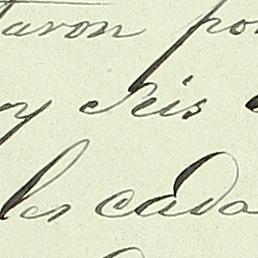 taron por
y Seis
les cada